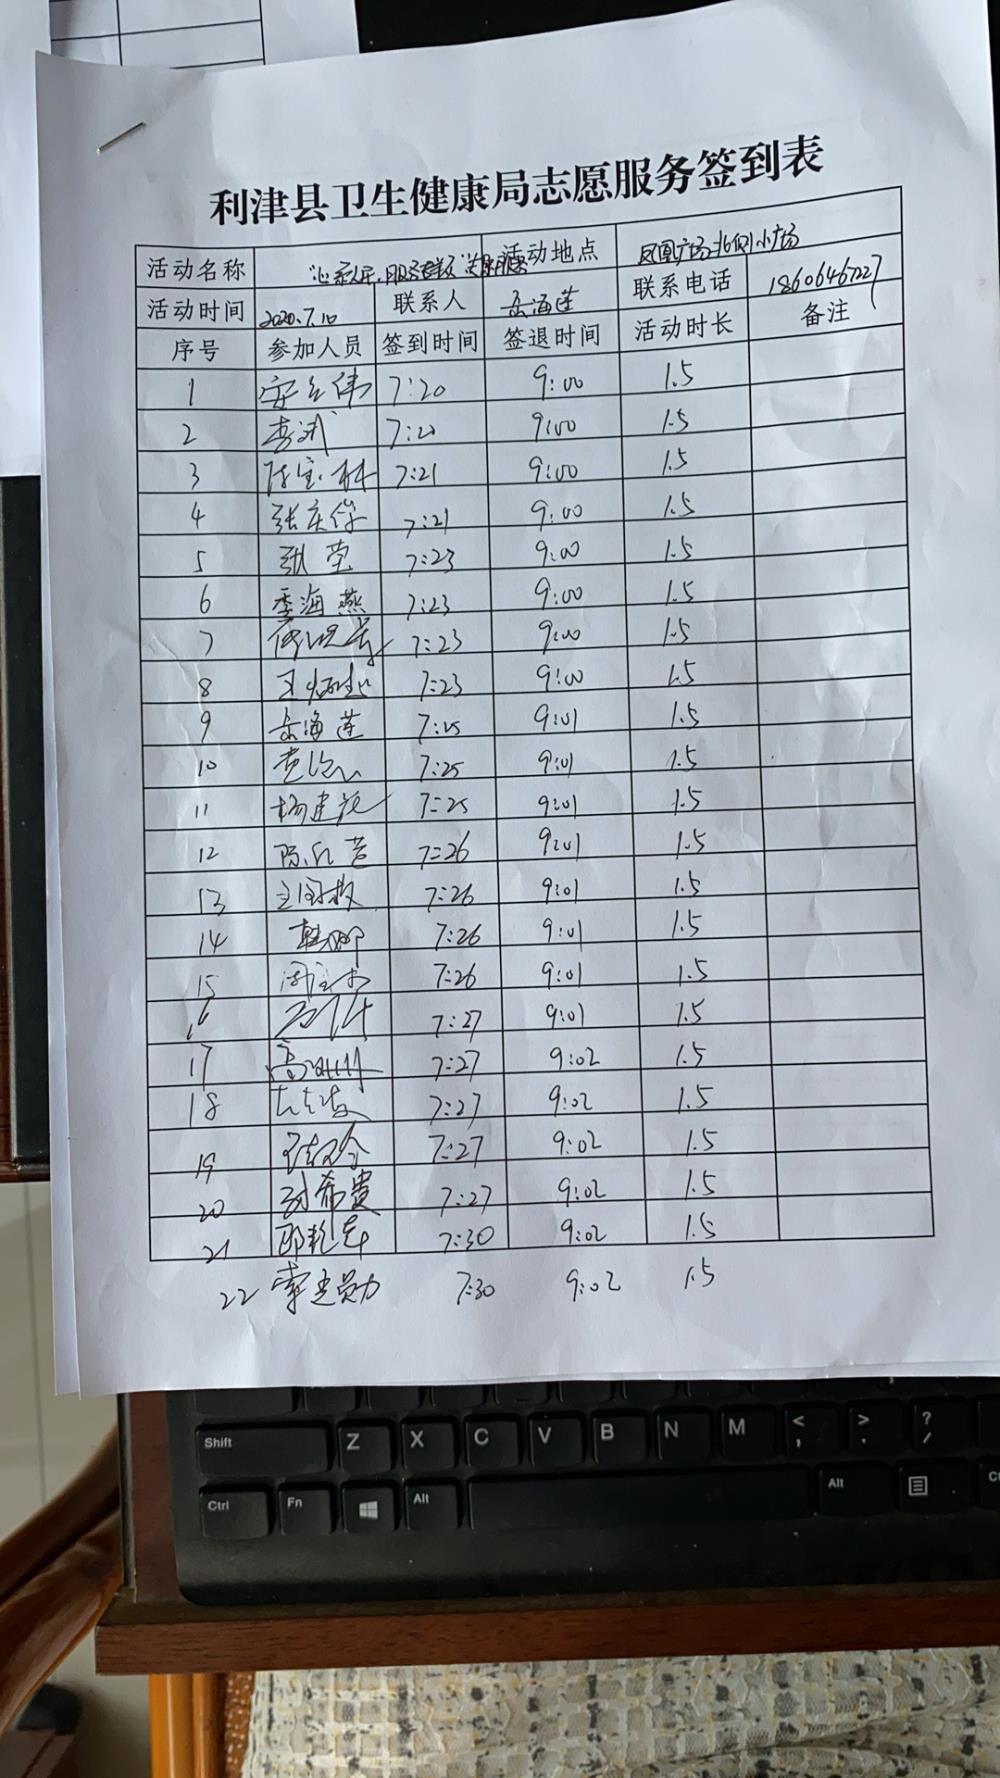 利津县卫生健康局志愿服务签到表
活动名称 活动地点 凤凰广场北侧小广场
活动时间 2020.7.10 联系人 岳海莲 联系电话
序号 参加人员 签到时间 签退时间 活动时长 备注
1 安立伟 7:20 9:00 1.5
2 李斌 7:20 9:00 1.5
3 陈宝林 7:21 9:00 1.5
4 张庆 7:21 9:00 1.5
5 张莹 7:23 9:00 1.5
6 季海燕 7:23 9:00 1.5
7 7:23 9:00 1.5
8 7:23 9:00 1.5
9 岳海莲 7:25 9:01 1.5
10 7:25 9:01 1.5
11 杨建花 7:25 9:01 1.5
12 7:26 9:01 1.5
13 7:26 9:01 1.5
14 韩娜 7:26 9:01 1.5
15 7:26 9:01 1.5
16 7:27 9:01 1.5
17 7:27 9:02 1.5
18 7:27 9:02 1.5
19 7:27 9:02 1.5
20 刘希贵 7:27 9:02 1.5
21 7:30 9:02 1.5
22 7:30 9:02 1.5
Shift Z X C V B N M < , > . ? /
Ctrl Fn Alt Alt